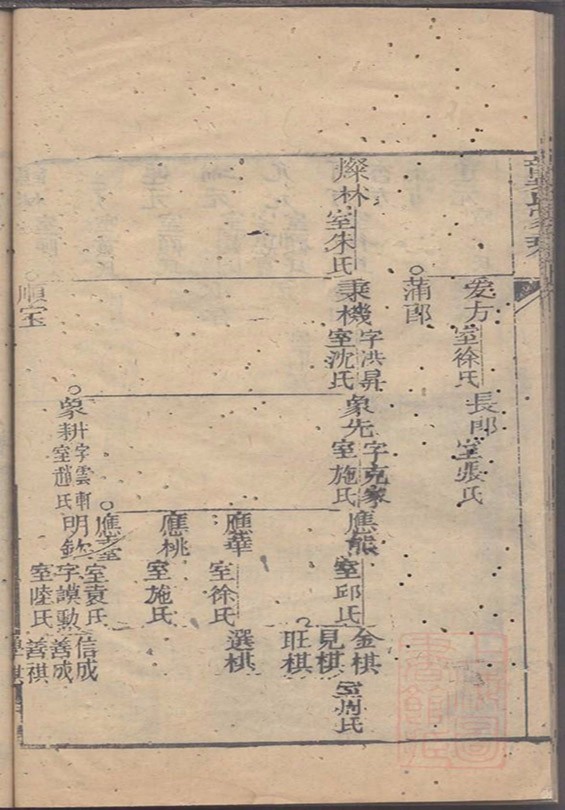 爰方
室徐氏
長郎
室張氏
蒲郎
燦林
室朱氏
秉機
字洪昇
室沈氏
象先
字克家
室施氏
應熊
室邱氏
金棋
室周氏
見棋
旺棋
應華
室徐氏
選棋
應桃
室施氏
室袁氏
信成
順宝
象耕
字雲軒
室趙氏
明欽
字謨勳
室陸氏
善成
善祺